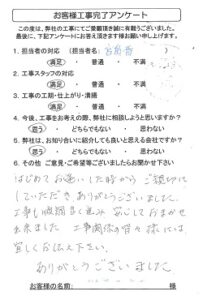 お客様工事完了アンケート
この度は、弊社の工事にてご愛顧頂き誠に有難うございました。
最後に、下記アンケートにお答え頂きます様お願い申し上げます。
1. 担当者の対応 (担当者名:
満足 ・ 普通 ・ 不満
2. 工事スタッフの対応
満足 ・ 普通 ・ 不満
3. 工事の工期・仕上がり・清掃
満足 ・ 普通 ・ 不満
4. 今後、工事をお考えの際、弊社に相談しようと思いますか?
思う ・ どちらでもない ・ 思わない
5. 弊社は、お知り合いに紹介しても良いと思える会社ですか?
思う ・ どちらでもない ・ 思わない
6. その他 ご意見・ご希望等ございましたらお聞かせ下さい
はじめてお逢いした時から ご親切に
していただき ありがとうございました。
工事も順調に進み 安心しておまかせ
出来ました 工事関係の皆々様には、
宜しくお伝え下さい。
ありがとうございました
お客様のお名前: 様